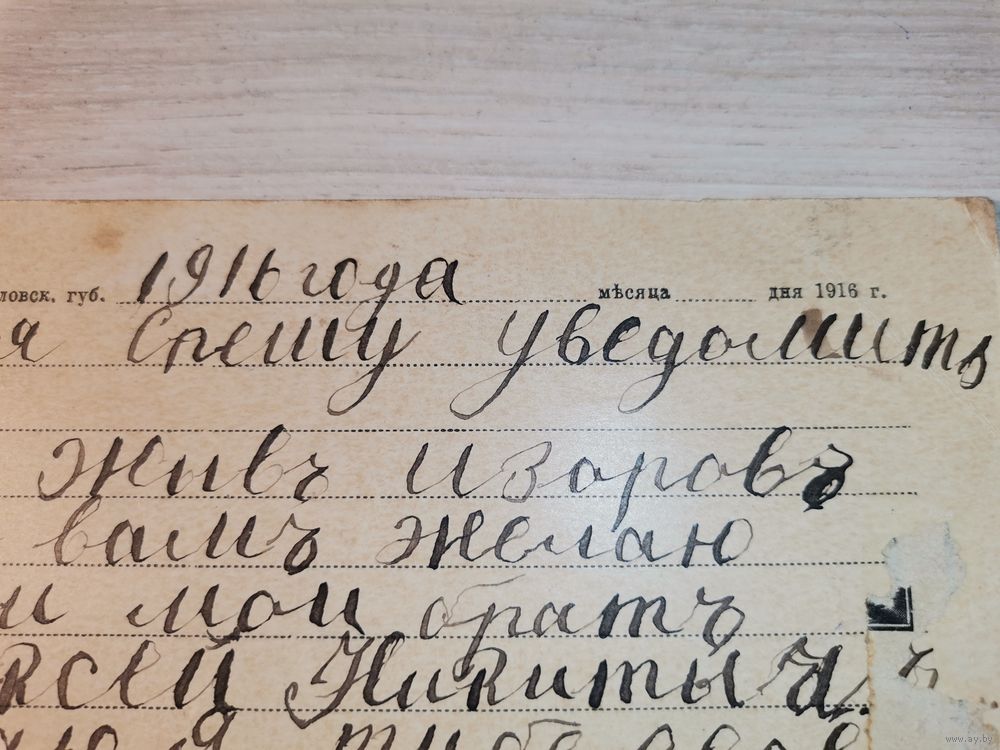 ловск. губ. 1916 года месяца дня 1916 г.
я Спешу уведомить
живъ изоровъ
вамъ желаю
и мои братъ
ксей Никитыч
www.ay.by